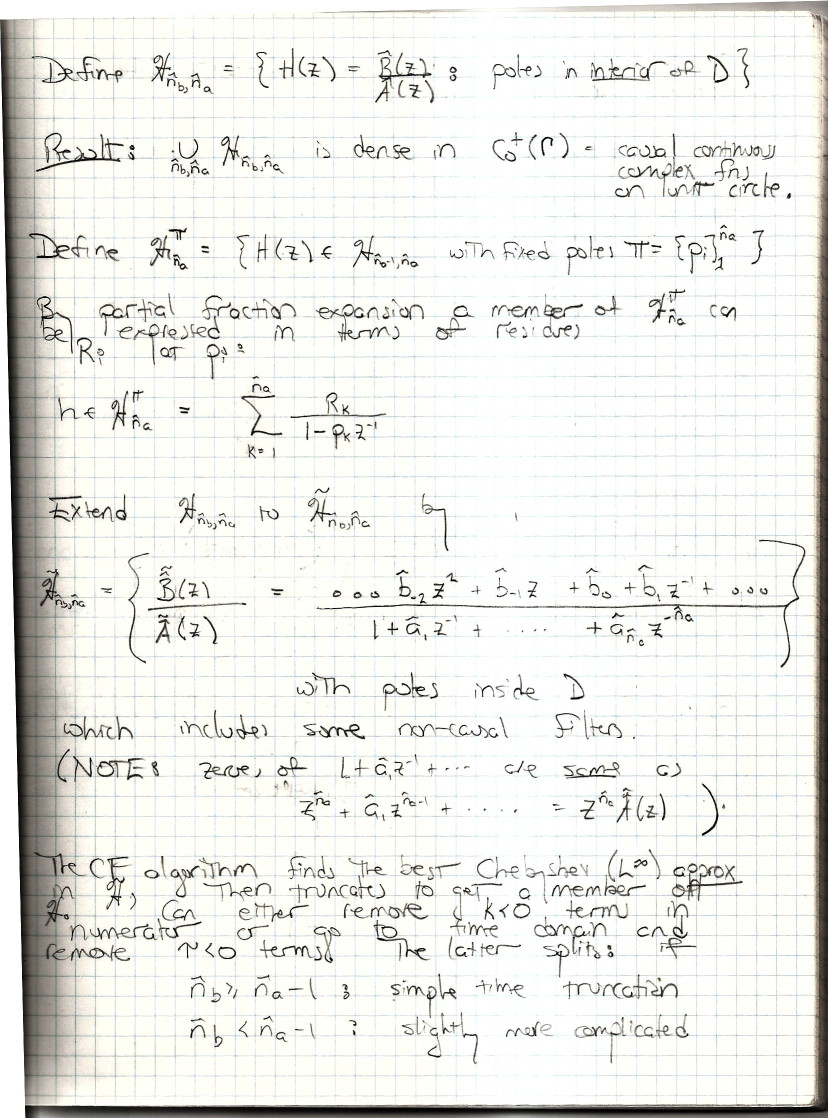 Define ℋ_{n̂_b,n̂_a} = { H(z) = B̂(z)/Â(z) : poles in interior of D }
Result: ∪_{n̂_b,n̂_a} ℋ_{n̂_b,n̂_a} is dense in C₀⁺(Γ) = causal continuous
complex fns
on unit circle.
Define ℋ^π_{n̂_a} = { H(z) ∈ ℋ_{n̂_a-1,n̂_a} with fixed poles π = {p_i}_1^{n̂_a} }
By partial fraction expansion a member of ℋ^π_{n̂_a} can
be expressed in terms of residues
R_i at p_i :
h ∈ ℋ^π_{n̂_a} = Σ_{k=1}^{n̂_a} R_k / (1 - p_k z⁻¹)
Extend ℋ_{n̂_b,n̂_a} to ℋ̃_{n̂_b,n̂_a} by
ℋ̃_{n̂_b,n̂_a} = { B̃(z)/Ã(z) = (... b̂₋₂ z² + b̂₋₁ z + b̂₀ + b̂₁ z⁻¹ + ...) / (1 + â₁ z⁻¹ + .... + â_{n̂_a} z^{-n̂_a}) }
with poles inside D
which includes some non-causal filters.
(NOTE: zeroes of 1 + â₁z⁻¹ + ... are same as
z^{n̂_a} + â₁ z^{n̂_a-1} + ..... = z^{n̂_a} Ã(z) ).
The CF algorithm finds the best Chebyshev (L^∞) approx
in ℋ̃, Then truncates to get a member of
ℋ. Can either remove k<0 terms in
numerator or go to time domain and
remove τ<0 terms. The latter splits: if
n̂_b ≥ n̂_a - 1 : simple time truncation
n̂_b < n̂_a - 1 : slightly more complicated